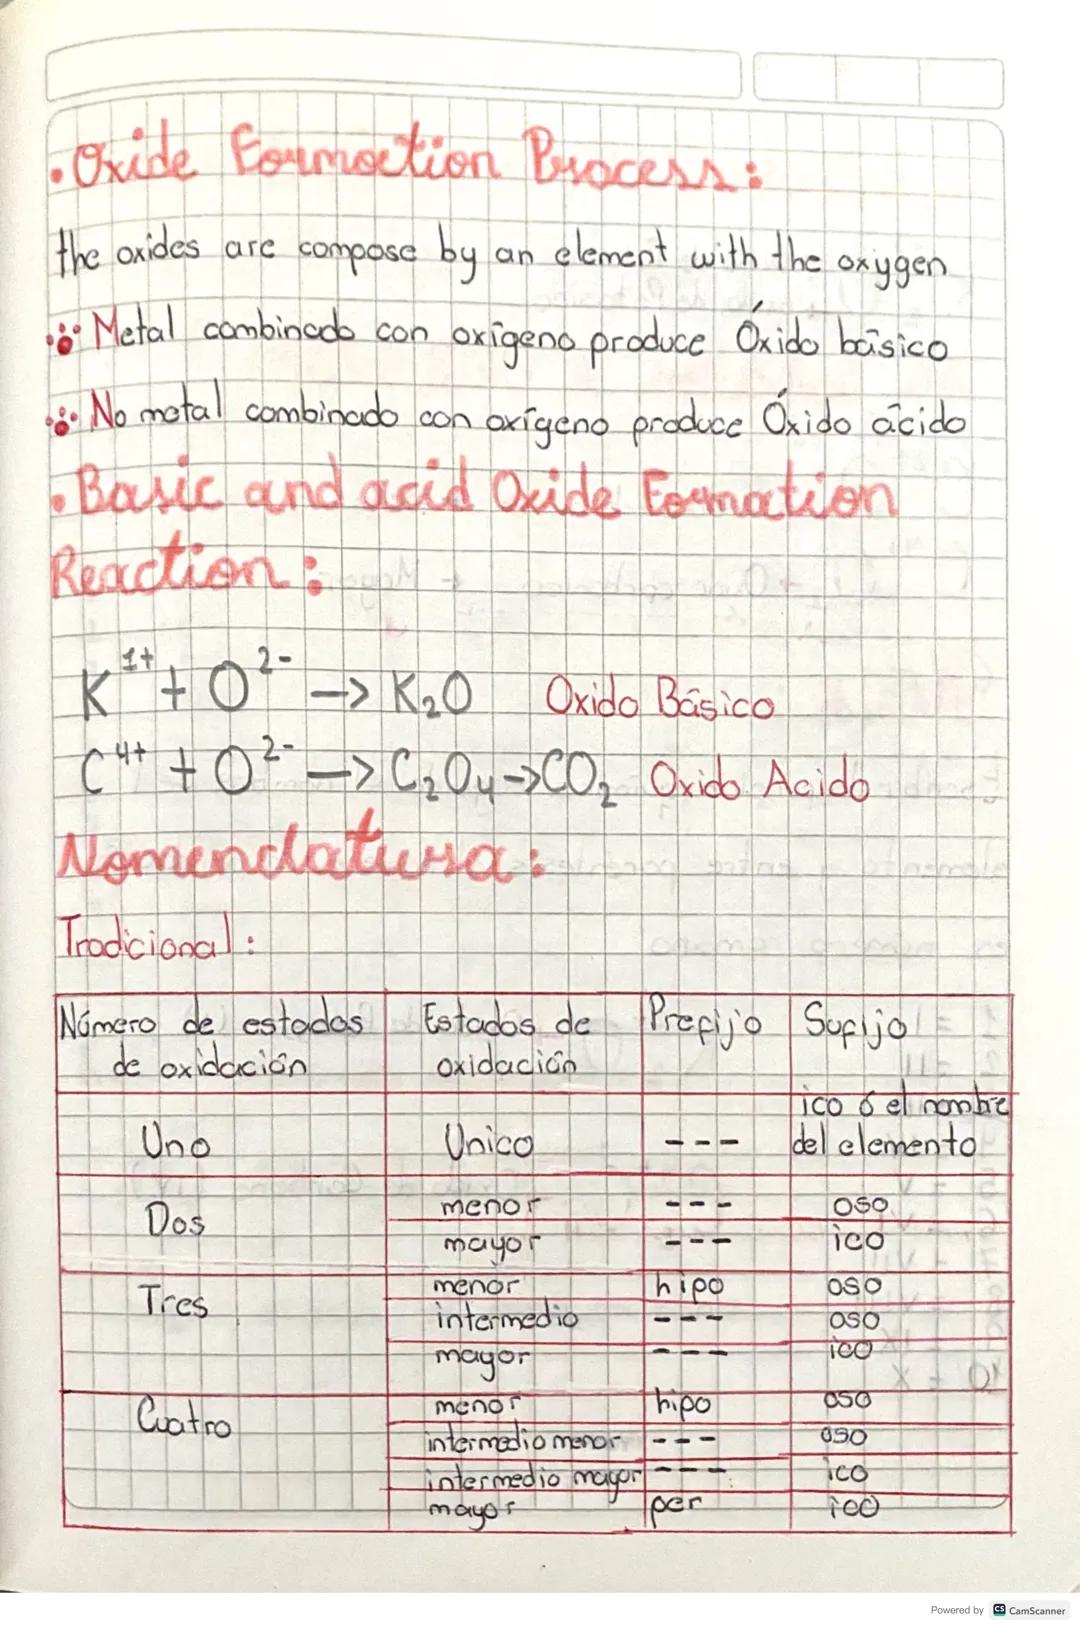 • Oxide Formation Process:
the oxides are compose by an element with the oxygen
Metal combinado con oxígeno produce Óxido básico
No metal combinado con oxígeno produce Óxido ácido
• Basic and acid Oxide Formation
Reaction:
K¹⁺ + O²⁻ —> K₂O Oxido Básico
C⁴⁺ + O²⁻ —> C₂O₄ -> CO₂ Oxido Acido
Nomenclatura:
Tradicional:
Número de estados de oxidación Estados de oxidación Prefijo Sufijo
Uno Unico --- ico ó el nombre del elemento
Dos menor --- oso
mayor --- ico
Tres menor hipo oso
intermedio --- oso
mayor --- ico
Cuatro menor hipo oso
intermedio menor --- oso
intermedio mayor --- ico
mayor per ico
Powered by CS CamScanner